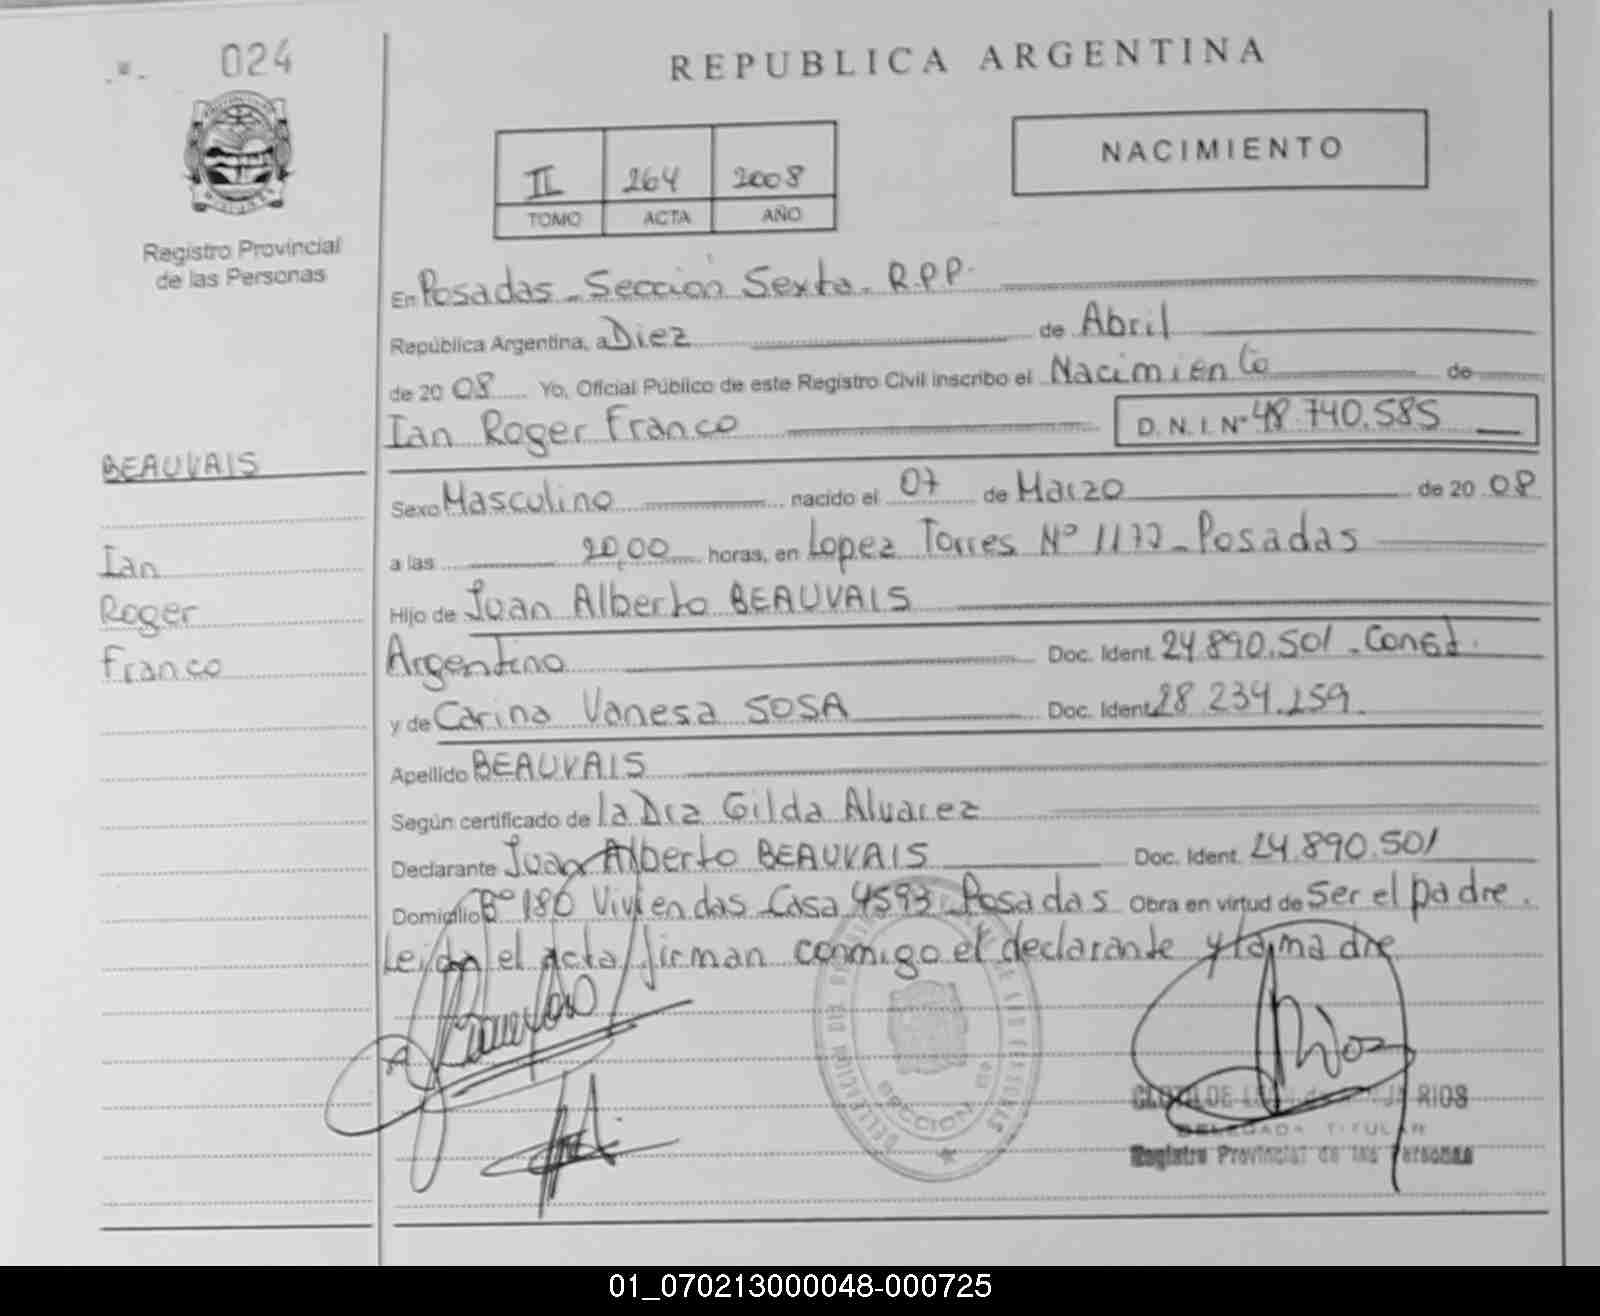 024
Registro Provincial
de las Personas
REPUBLICA ARGENTINA
II 264 2008
TOMO ACTA AÑO
NACIMIENTO
En Posadas - Sección Sexta - R.P.P.
República Argentina, a Diez de Abril
de 20 08 Yo, Oficial Público de este Registro Civil inscribo el Nacimiento de
Ian Roger Franco D.N.I. Nº 48.740.585
BEAUVAIS
Sexo Masculino nacido el 07 de Marzo de 20 08
Ian
a las 20,00 horas, en Lopez Torres Nº 1177 - Posadas
Roger
Hijo de Juan Alberto BEAUVAIS
Franco
Argentino Doc. Ident. 24.890.501 - Const.
y de Carina Vanesa SOSA Doc. Ident. 28.234.259
Apellido BEAUVAIS
Según certificado de la Dra Gilda Alvarez
Declarante Juan Alberto BEAUVAIS Doc. Ident. 24.890.501
Domicilio Bº 180 Viviendas Casa 4593 Posadas Obra en virtud de Ser el padre.
Leida el acta firman conmigo el declarante y la madre
RIOS
DELEGADA TITULAR
Registro Provincial de las Personas
01_070213000048-000725